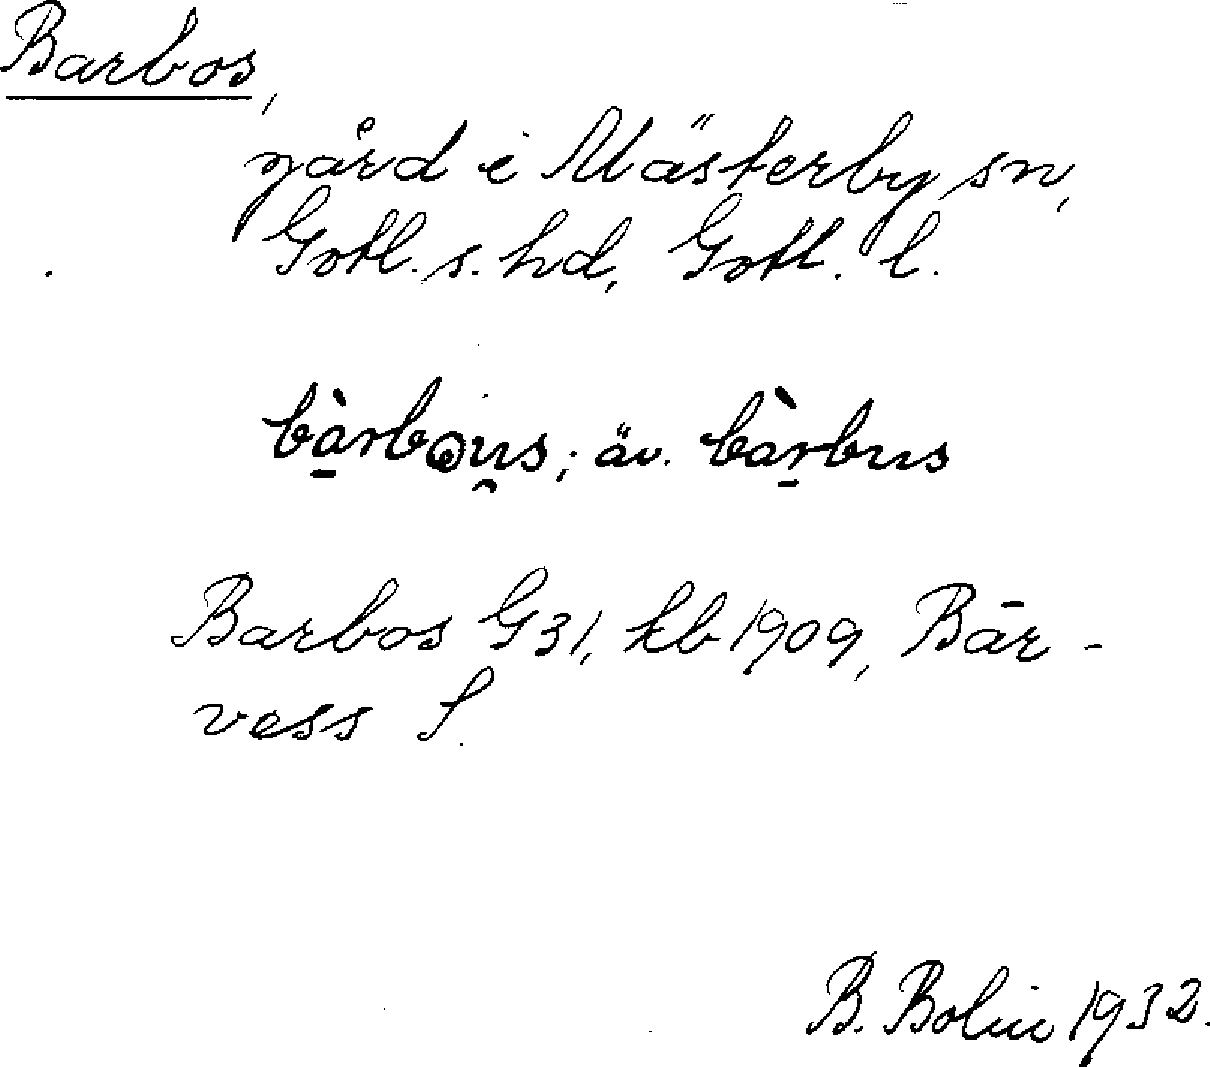 Barbos,
gård i Mästerby sn,
Gotl. s. hd, Gotl. l.
bà̱rbɷu̯s; äv. bàṟbus
Barbos G31, kb 1909, Bār-
vess S.
B. Bolin 1932.